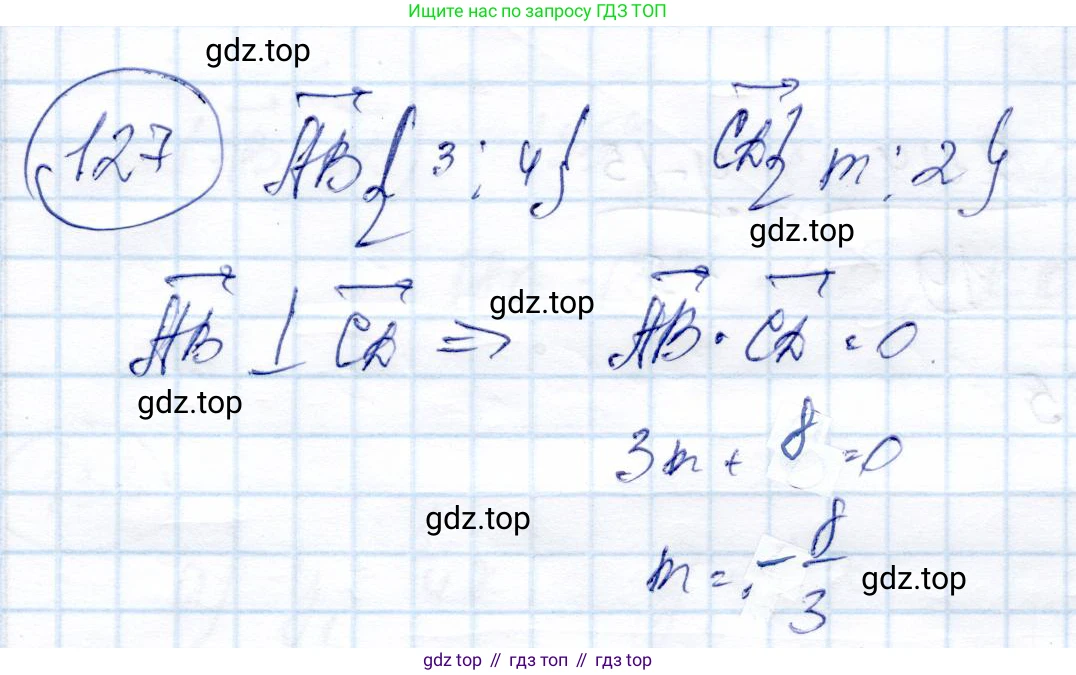 Ищите нас по запросу ГДЗ ТОП
gdz.top
127 AB{3; 4} CD{m; 2}
gdz.top
AB ⊥ CD => AB · CD = 0
gdz.top
gdz.top
3m + 8 = 0
gdz.top
m = -8/3
gdz.top
gdz top // гдз топ // гдз top